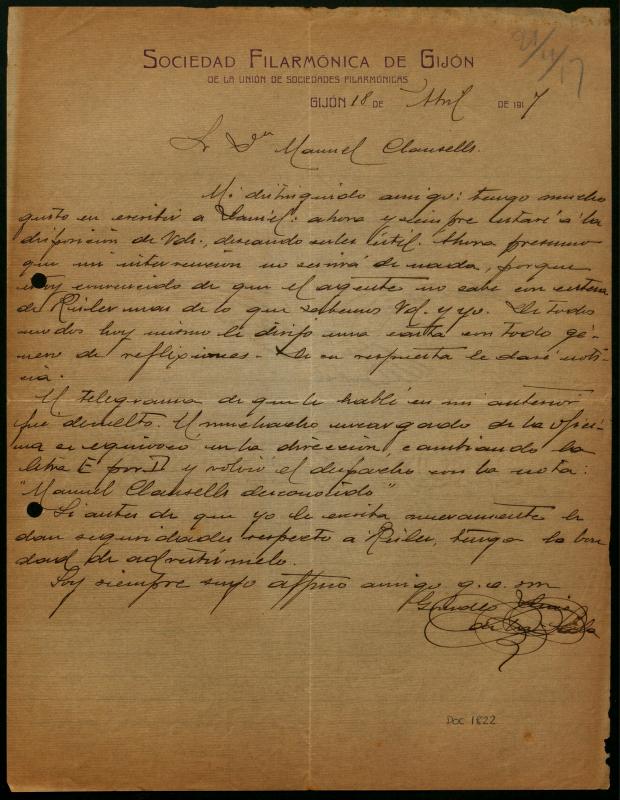 Sociedad Filarmónica de Gijón
de la Unión de Sociedades Filarmónicas
Gijón 18 de Abril de 1917
Sr Dn Manuel Clausells.
Mi distinguido amigo: tengo mucho
gusto en escribir a Daniel: ahora y siempre estaré á la
disposición de Vds., deseando serles útil. Ahora presumo
que mi intervención no servirá de nada, porque
estoy convencido de que el agente no sabe con certeza
de Risler mas de lo que sabemos Vd. y yo. De todos
modos hoy mismo le dirijo una carta con todo gé-
nero de reflixiones. De su respuesta le daré noti-
cia.
El telegrama de que le hablé en mi anterior
fué devuelto. El muchacho encargado de la ofici-
na se equivocó en la dirección, cambiando la
letra E por D y volvió el despacho con la nota:
"Manuel Clausells desconocido"
Si antes de que yo le escriba nuevamente le
dan seguridades respecto a Risler, tenga la bon
dad de advertírmelo.
Soy siempre suyo affmo amigo q. e. s m
Doc 1822